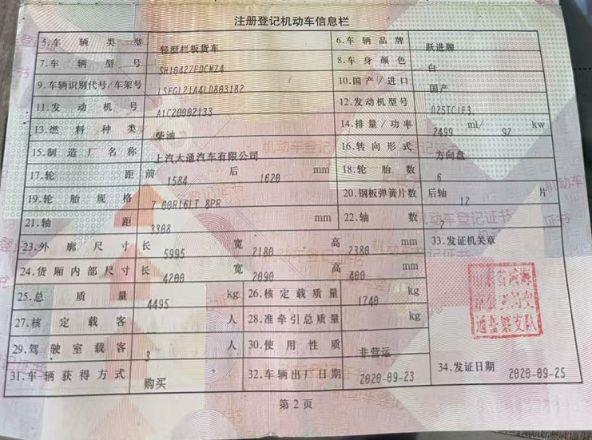 注册登记机动车信息栏
5.车辆类型 轻型栏板货车 6.车辆品牌 跃进牌
7.车辆型号 SH1042ZFDCHZ4 8.车身颜色 白
9.车辆识别代号/车架号 10.国产/进口 国产
11.发动机号 A1C20002133 12.发动机型号
13.燃料种类 柴油 14.排量/功率 2499 ml/ 92 kw
15.制造厂名称 上汽大通汽车有限公司 16.转向形式 方向盘
17.轮距 前 1584 后 1620 mm 18.轮胎数 6
19.轮胎规格 7.00R16LT 8PR 20.钢板弹簧片数 后轴 12 片
21.轴距 3308 mm 22.轴数 2
23.外廓尺寸 长 5995 宽 2180 高 2380 mm 33.发证机关章
24.货厢内部尺寸 长 4200 宽 2090 高 400 mm
25.总质量 4495 kg 26.核定载质量 1740 kg
27.核定载客 人 28.准牵引总质量 kg
29.驾驶室载客 3 人 30.使用性质 非营运
31.车辆获得方式 购买 32.车辆出厂日期 2020-09-23 34.发证日期 2020-09-25
第2页